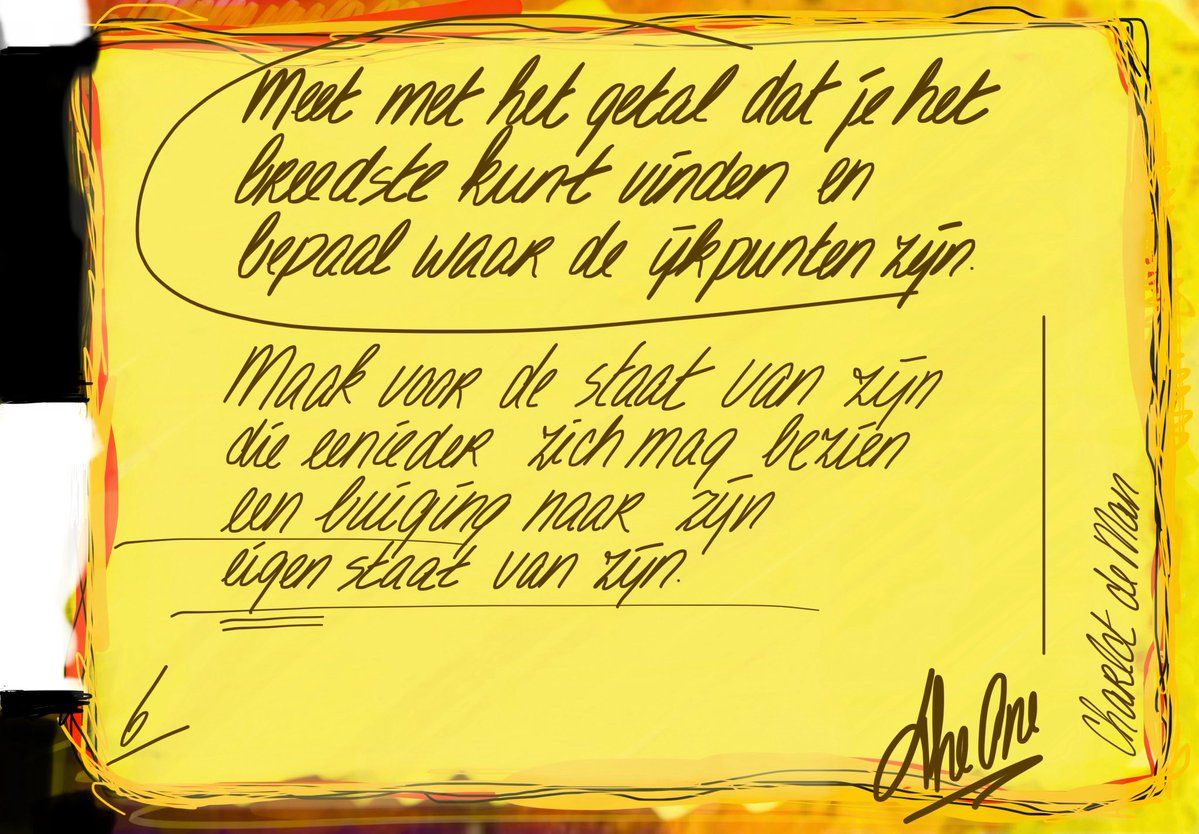 Meet met het getal dat je het
breedste kunt vinden en
bepaal waar de ijkpunten zijn.
Maak voor de staat van zijn
die eenieder zich mag bezien
een buiging naar zijn
eigen staat van zijn.
6
The One
Charlot de Man